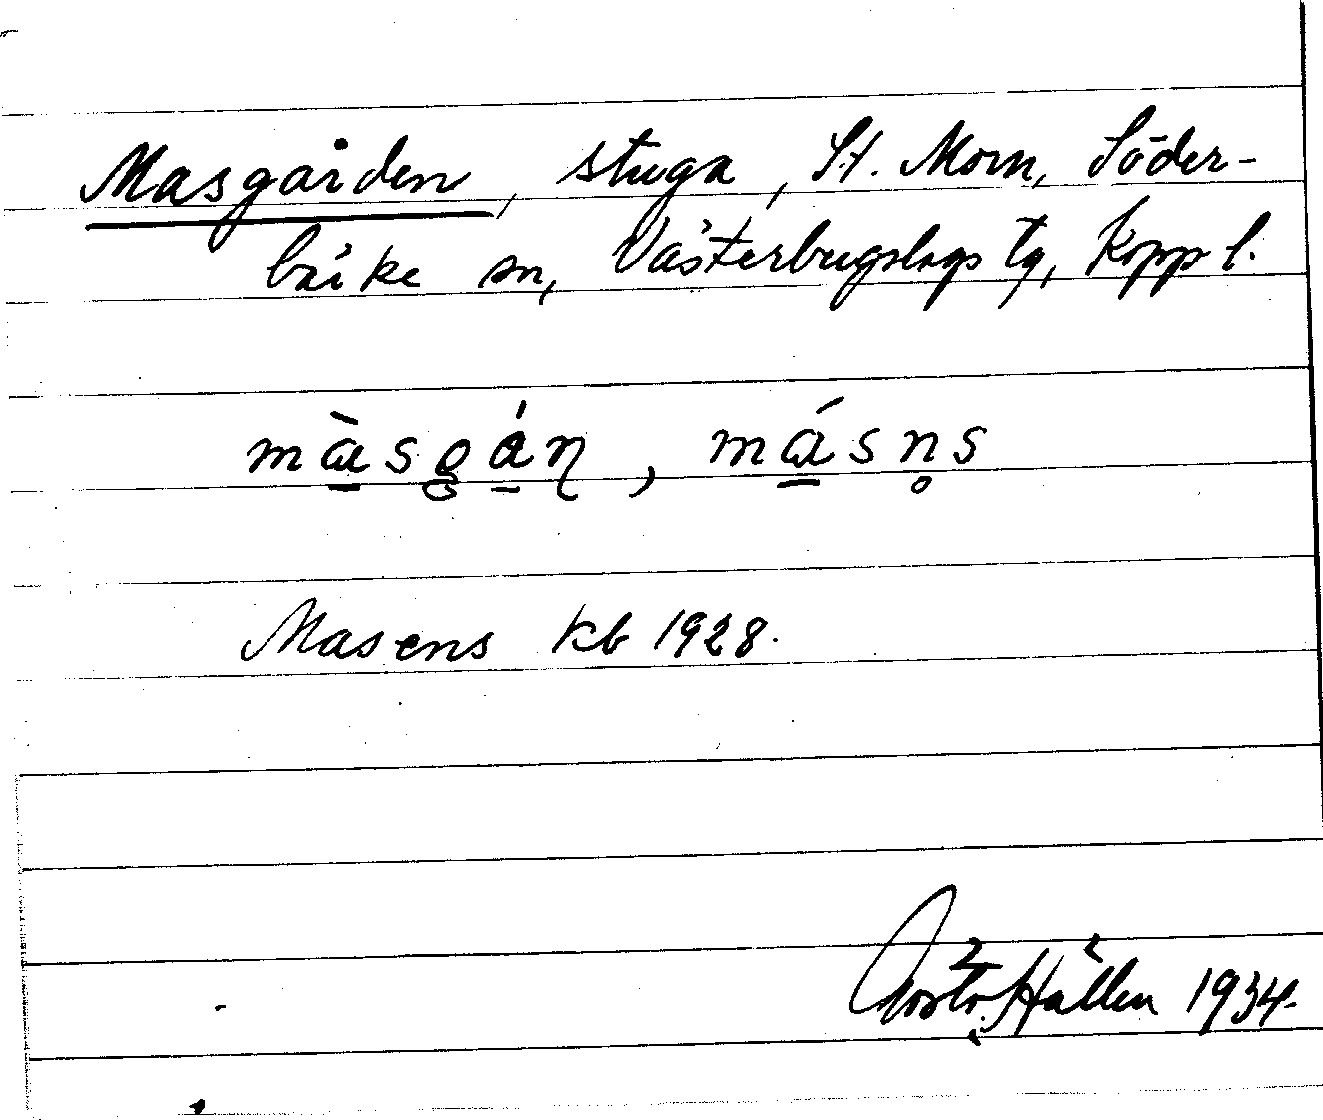 Masgården, stuga, St. Morn, Söder-
bärke sn, Västerbergslags tg, Kopp l.
màsgán, másn̥s
Masens kb 1928.
Gösta Hallen 1934.